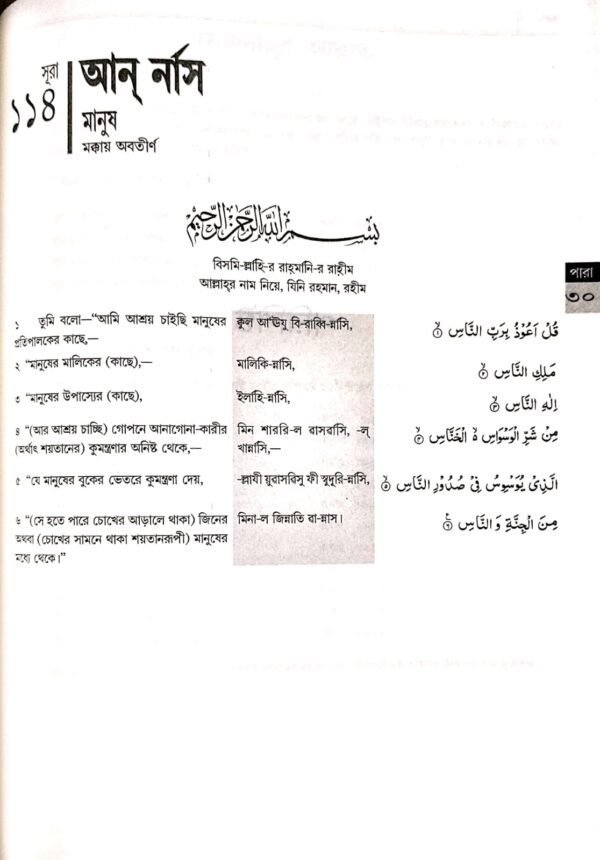 সূরা
১১৪
আন্ নাস
মানুষ
মক্কায় অবতীর্ণ
بسم الله الرحمن الرحيم
বিসমি-ল্লাহি-র রাহ়মানি-র রাহ়ীম
আল্লাহ্‌র নাম নিয়ে, যিনি রহমান, রহীম
পারা
৩০
১ তুমি বলো—“আমি আশ্রয় চাইছি মানুষের
প্রতিপালকের কাছে,—
কুল আ'ঊযু বি-রাব্বি-ন্নাসি,
قُلْ اَعُوْذُ بِرَبِّ النَّاسِ ۙ۱
২ “মানুষের মালিকের (কাছে),—
মালিকি-ন্নাসি,
مَلِكِ النَّاسِ ۙ۲
৩ “মানুষের উপাস্যের (কাছে),
ইলাহি-ন্নাসি,
اِلٰهِ النَّاسِ ۙ۳
৪ “(আর আশ্রয় চাচ্ছি) গোপনে আনাগোনা-কারীর
(অর্থাৎ শয়তানের) কুমন্ত্রণার অনিষ্ট থেকে,—
মিন শাররি-ল ৱাসৱাসি, -ল্
খান্নাসি,—
مِنْ شَرِّ الْوَسْوَاسِ ۙ الْخَنَّاسِ ۙ۴
৫ “যে মানুষের বুকের ভেতরে কুমন্ত্রণা দেয়,
-ল্লাযী য়ুৱাসৱিসু ফী স়ুদূরি-ন্নাসি,
الَّذِيْ يُوَسْوِسُ فِيْ صُدُوْرِ النَّاسِ ۙ۵
৬ “(সে হতে পারে চোখের আড়ালে থাকা) জিনের
অথবা (চোখের সামনে থাকা শয়তানরূপী) মানুষের
মধ্য থেকে।”
মিনা-ল জিন্নাতি ৱা-ন্নাস।
مِنَ الْجِنَّةِ وَ النَّاسِ ۶